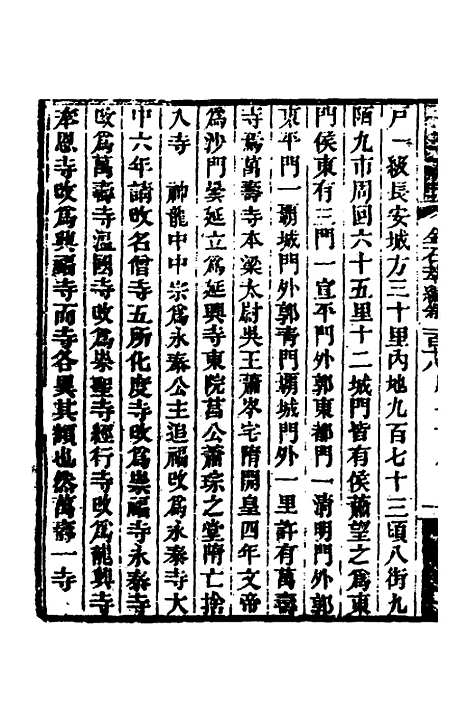 戸一級長安城方三十里內地九百七十三頃八街九
陌九市周回六十五里十二城門皆有侯蕭望之爲東
門侯東有三門一宣平門外郭東都門一清明門外郭
東平門一霸城門外郭青門霸城門外一里許有萬壽
寺焉萬壽寺本梁太尉吳王蕭岑宅隋開皇四年文帝
爲沙門曇延立爲延興寺東院莒公蕭琮之堂隋亡捨
入寺 神龍中中宗爲永泰公主追福改爲永泰寺大
中六年請改名僧寺五所化度寺改爲崇福寺永泰寺
改爲萬壽寺溫國寺改爲崇聖寺經行寺改爲龍興寺
奉恩寺改爲興福寺而寺各異其額也然萬壽一寺